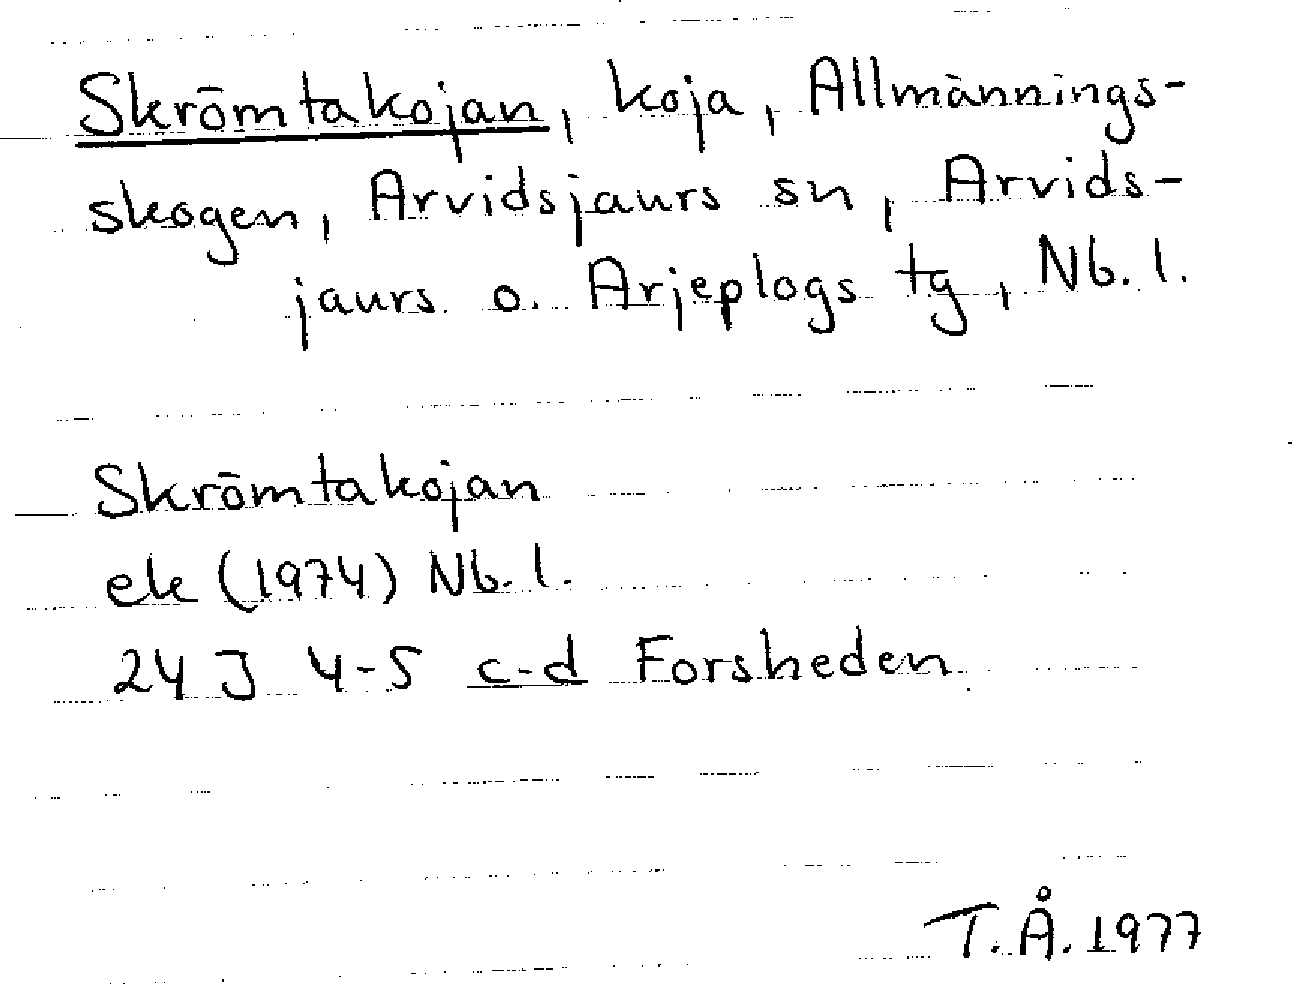 Skrömtakojan, koja, Allmännings-
skogen, Arvidsjaurs sn, Arvids-
jaurs o. Arjeplogs tg, Nb. l.
Skrömtakojan
ek (1974) Nb. l.
24 J 4-5 c-d Forsheden
T.Å. 1977